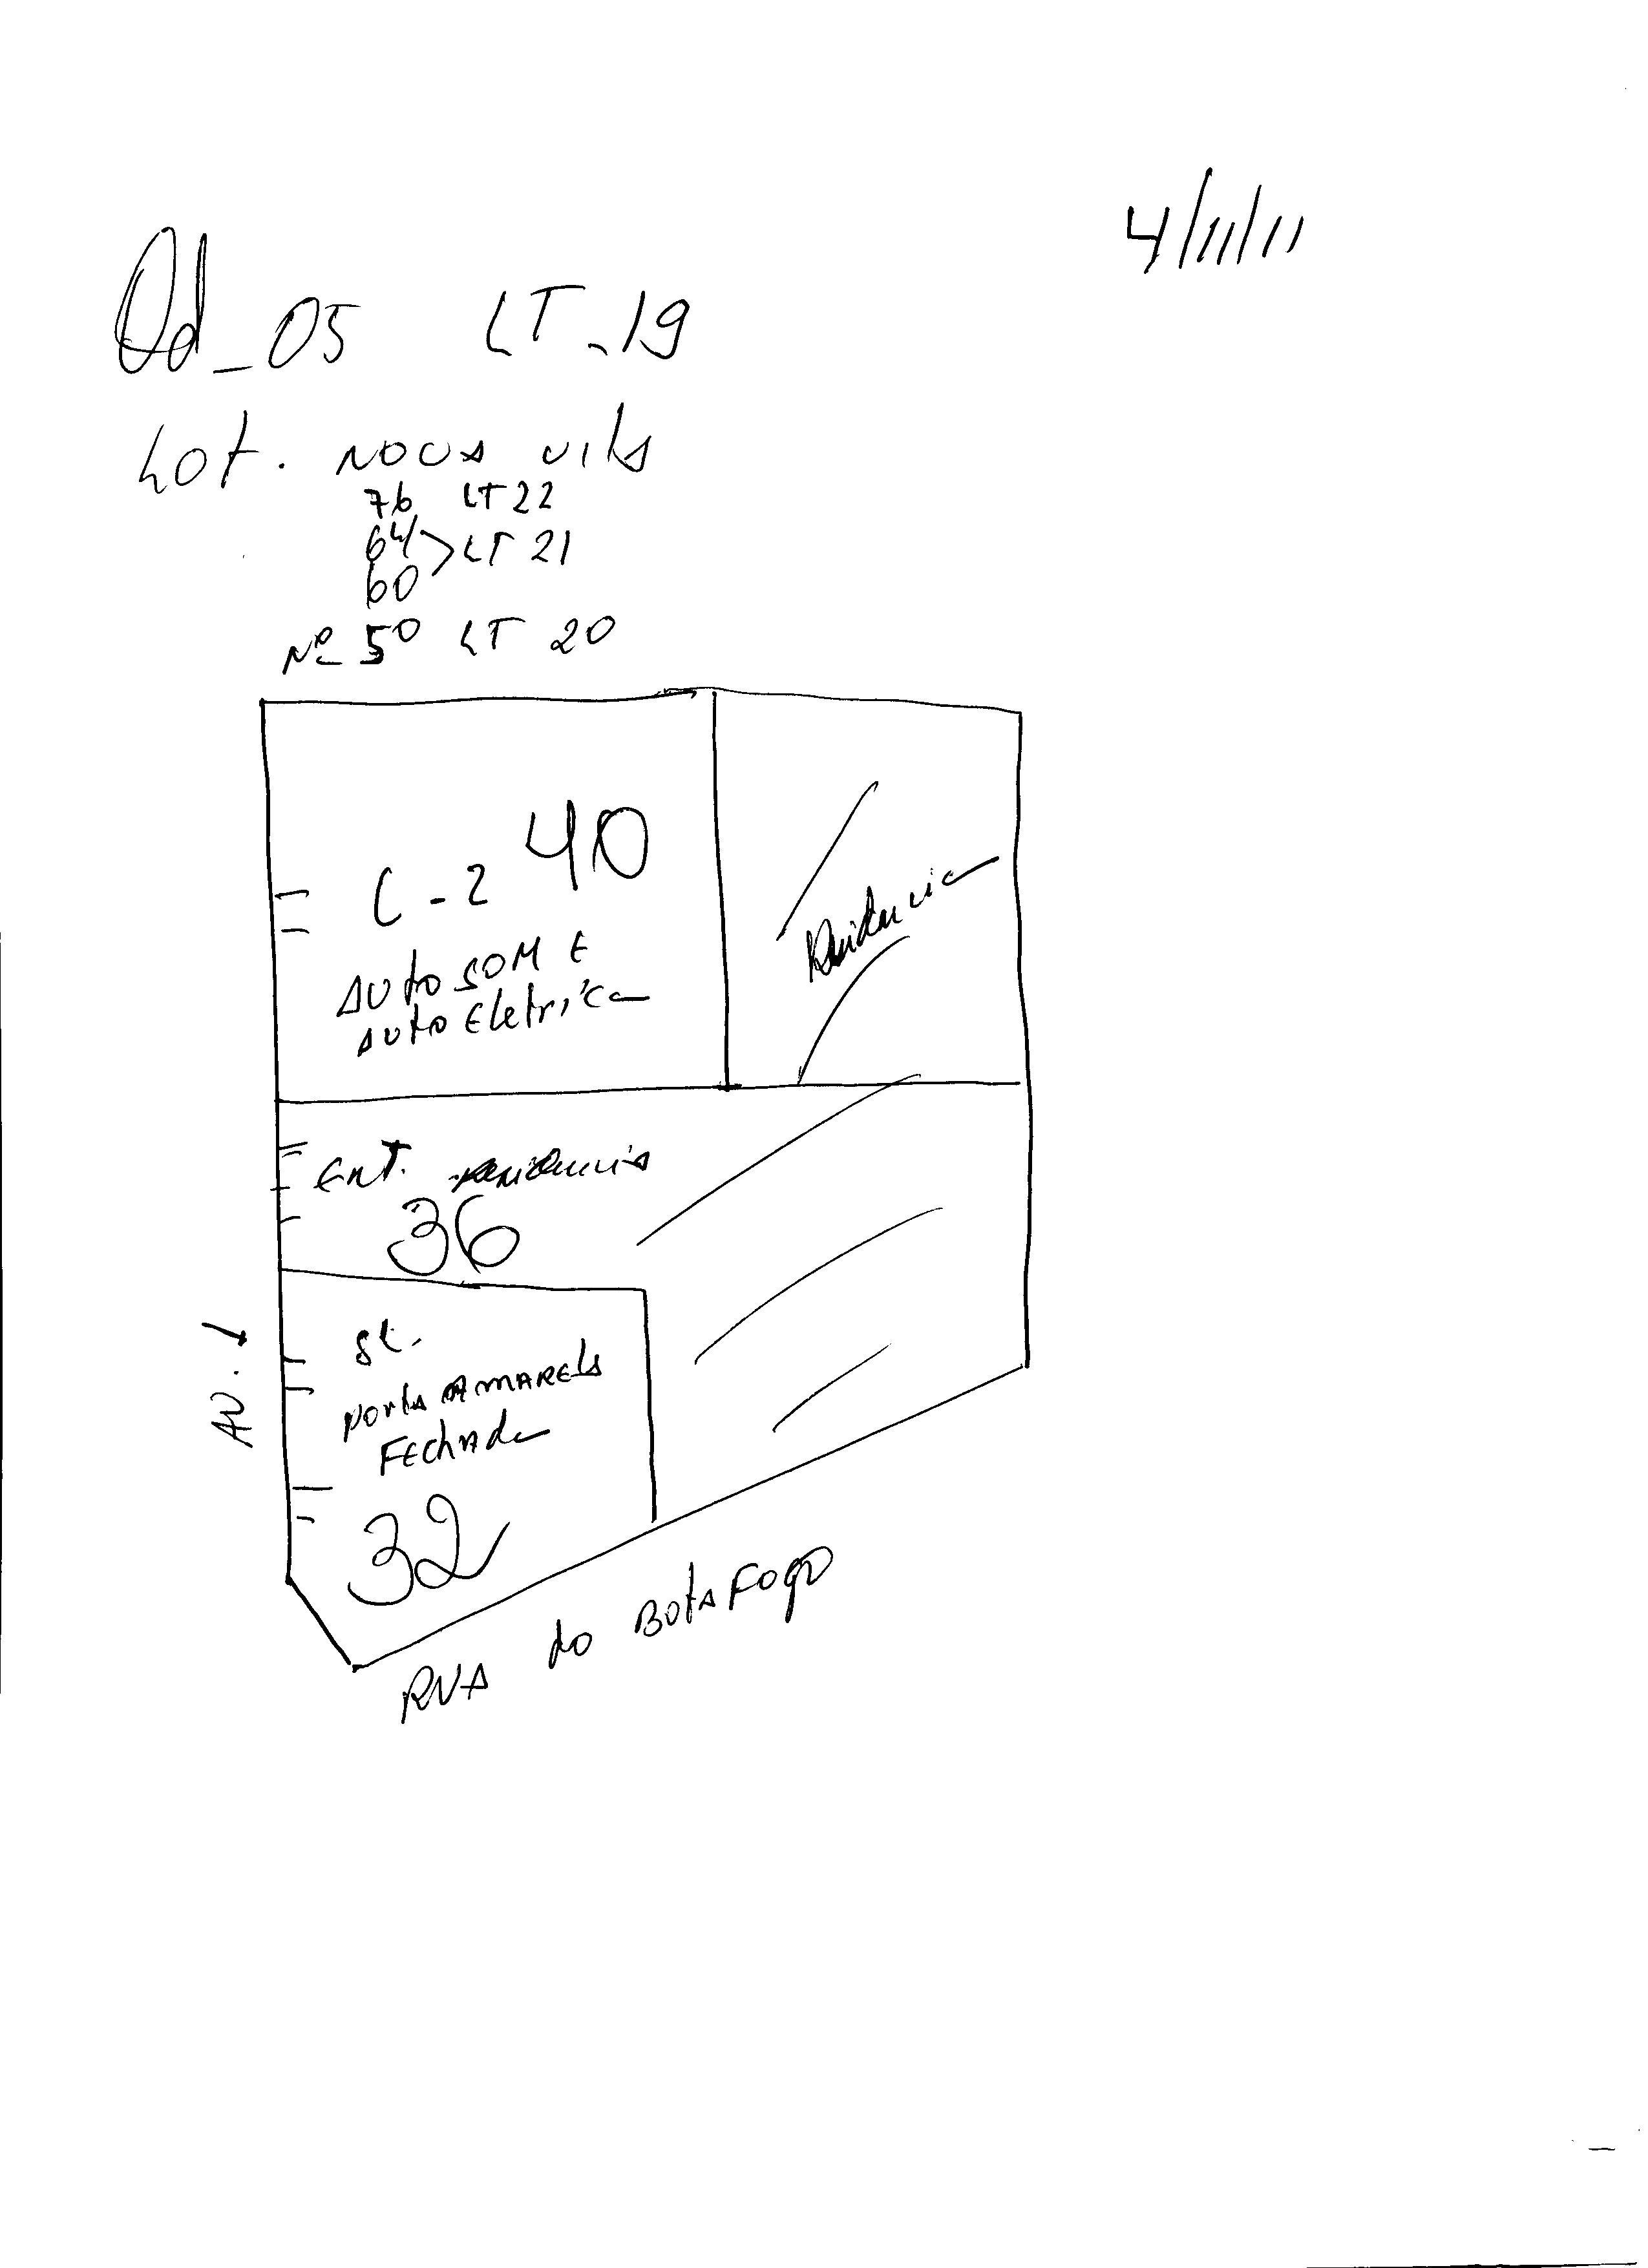 4/11/11
Qd_05 LT_19
Lot. NOVA VILA
76 LT 22
64 > LT 21
60
Nº 50 LT 20
C-2 40
AUTO SOM E
AUTO ELETRICA
Residencia
Ent. residencia
36
SL.
porta AMARELA
FECHADA
32
AV. 1
RUA do BOTAFOGO